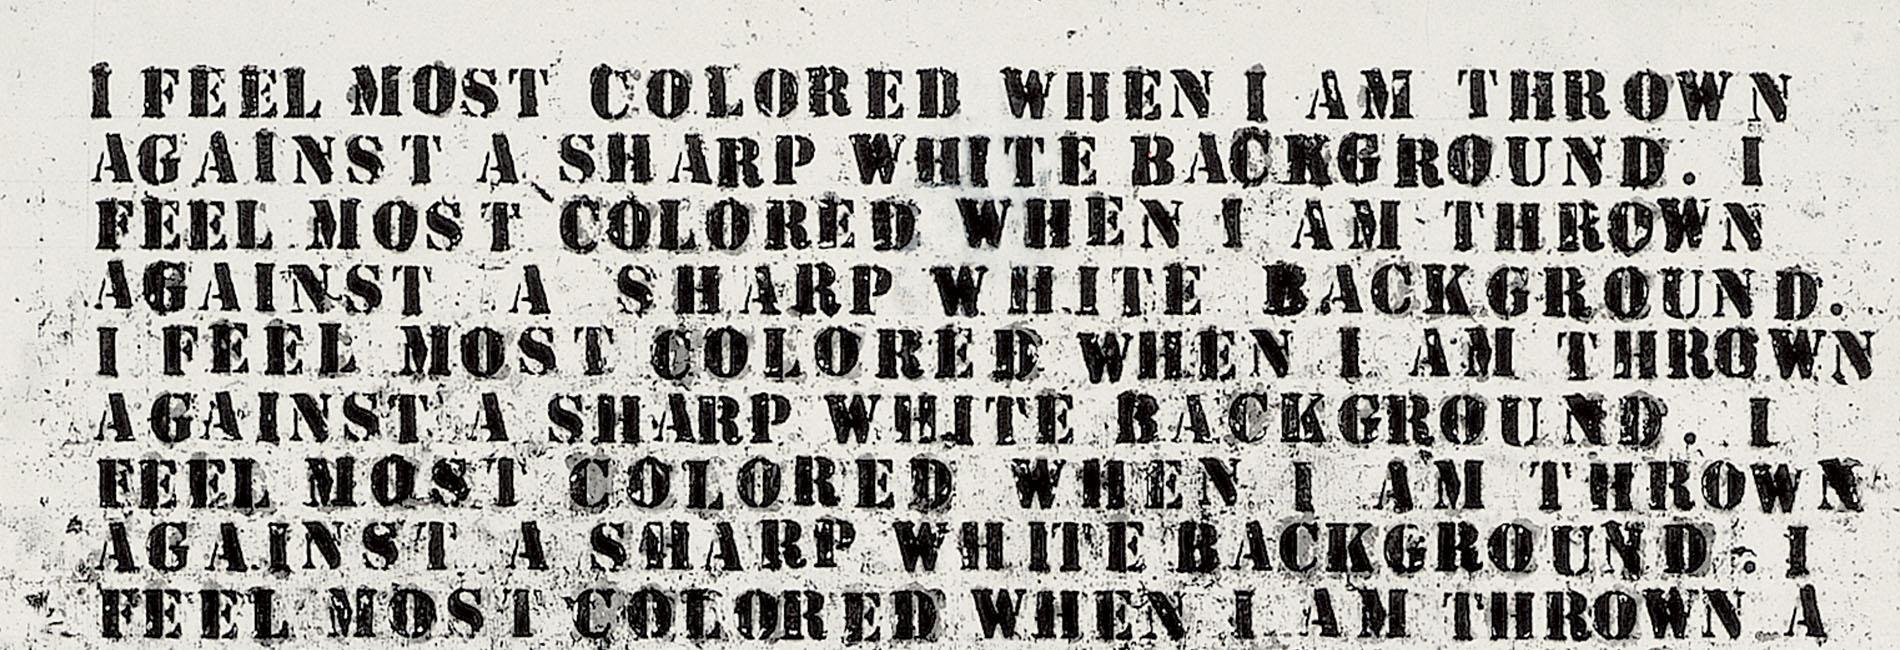 I FEEL MOST COLORED WHEN I AM THROWN
AGAINST A SHARP WHITE BACKGROUND. I
FEEL MOST COLORED WHEN I AM THROWN
AGAINST A SHARP WHITE BACKGROUND.
I FEEL MOST COLORED WHEN I AM THROWN
AGAINST A SHARP WHITE BACKGROUND. I
FEEL MOST COLORED WHEN I AM THROWN
AGAINST A SHARP WHITE BACKGROUND. I
FEEL MOST COLORED WHEN I AM THROWN A